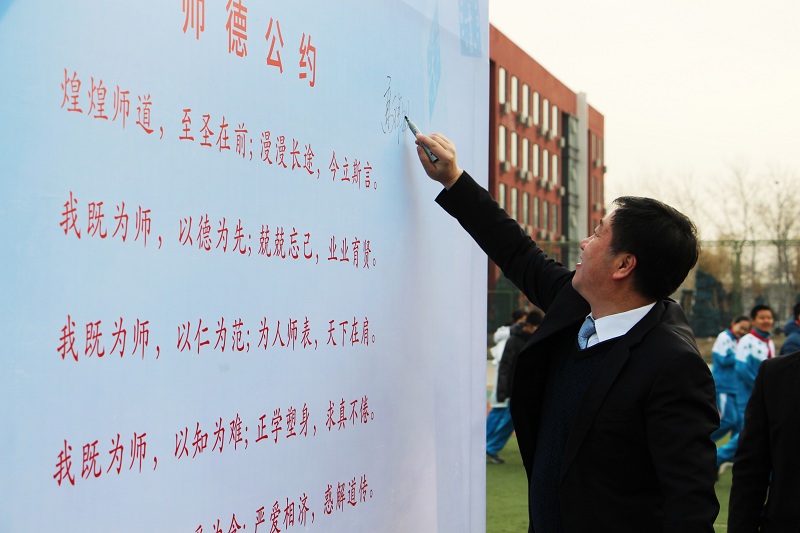 师德公约
煌煌师道，至圣在前；漫漫长途，今立斯言。
我既为师，以德为先；兢兢忘己，业业育贤。
我既为师，以仁为范；为人师表，天下在肩。
我既为师，以知为难；正学塑身，求真不倦。
为舍；严爱相济，惑解道传。